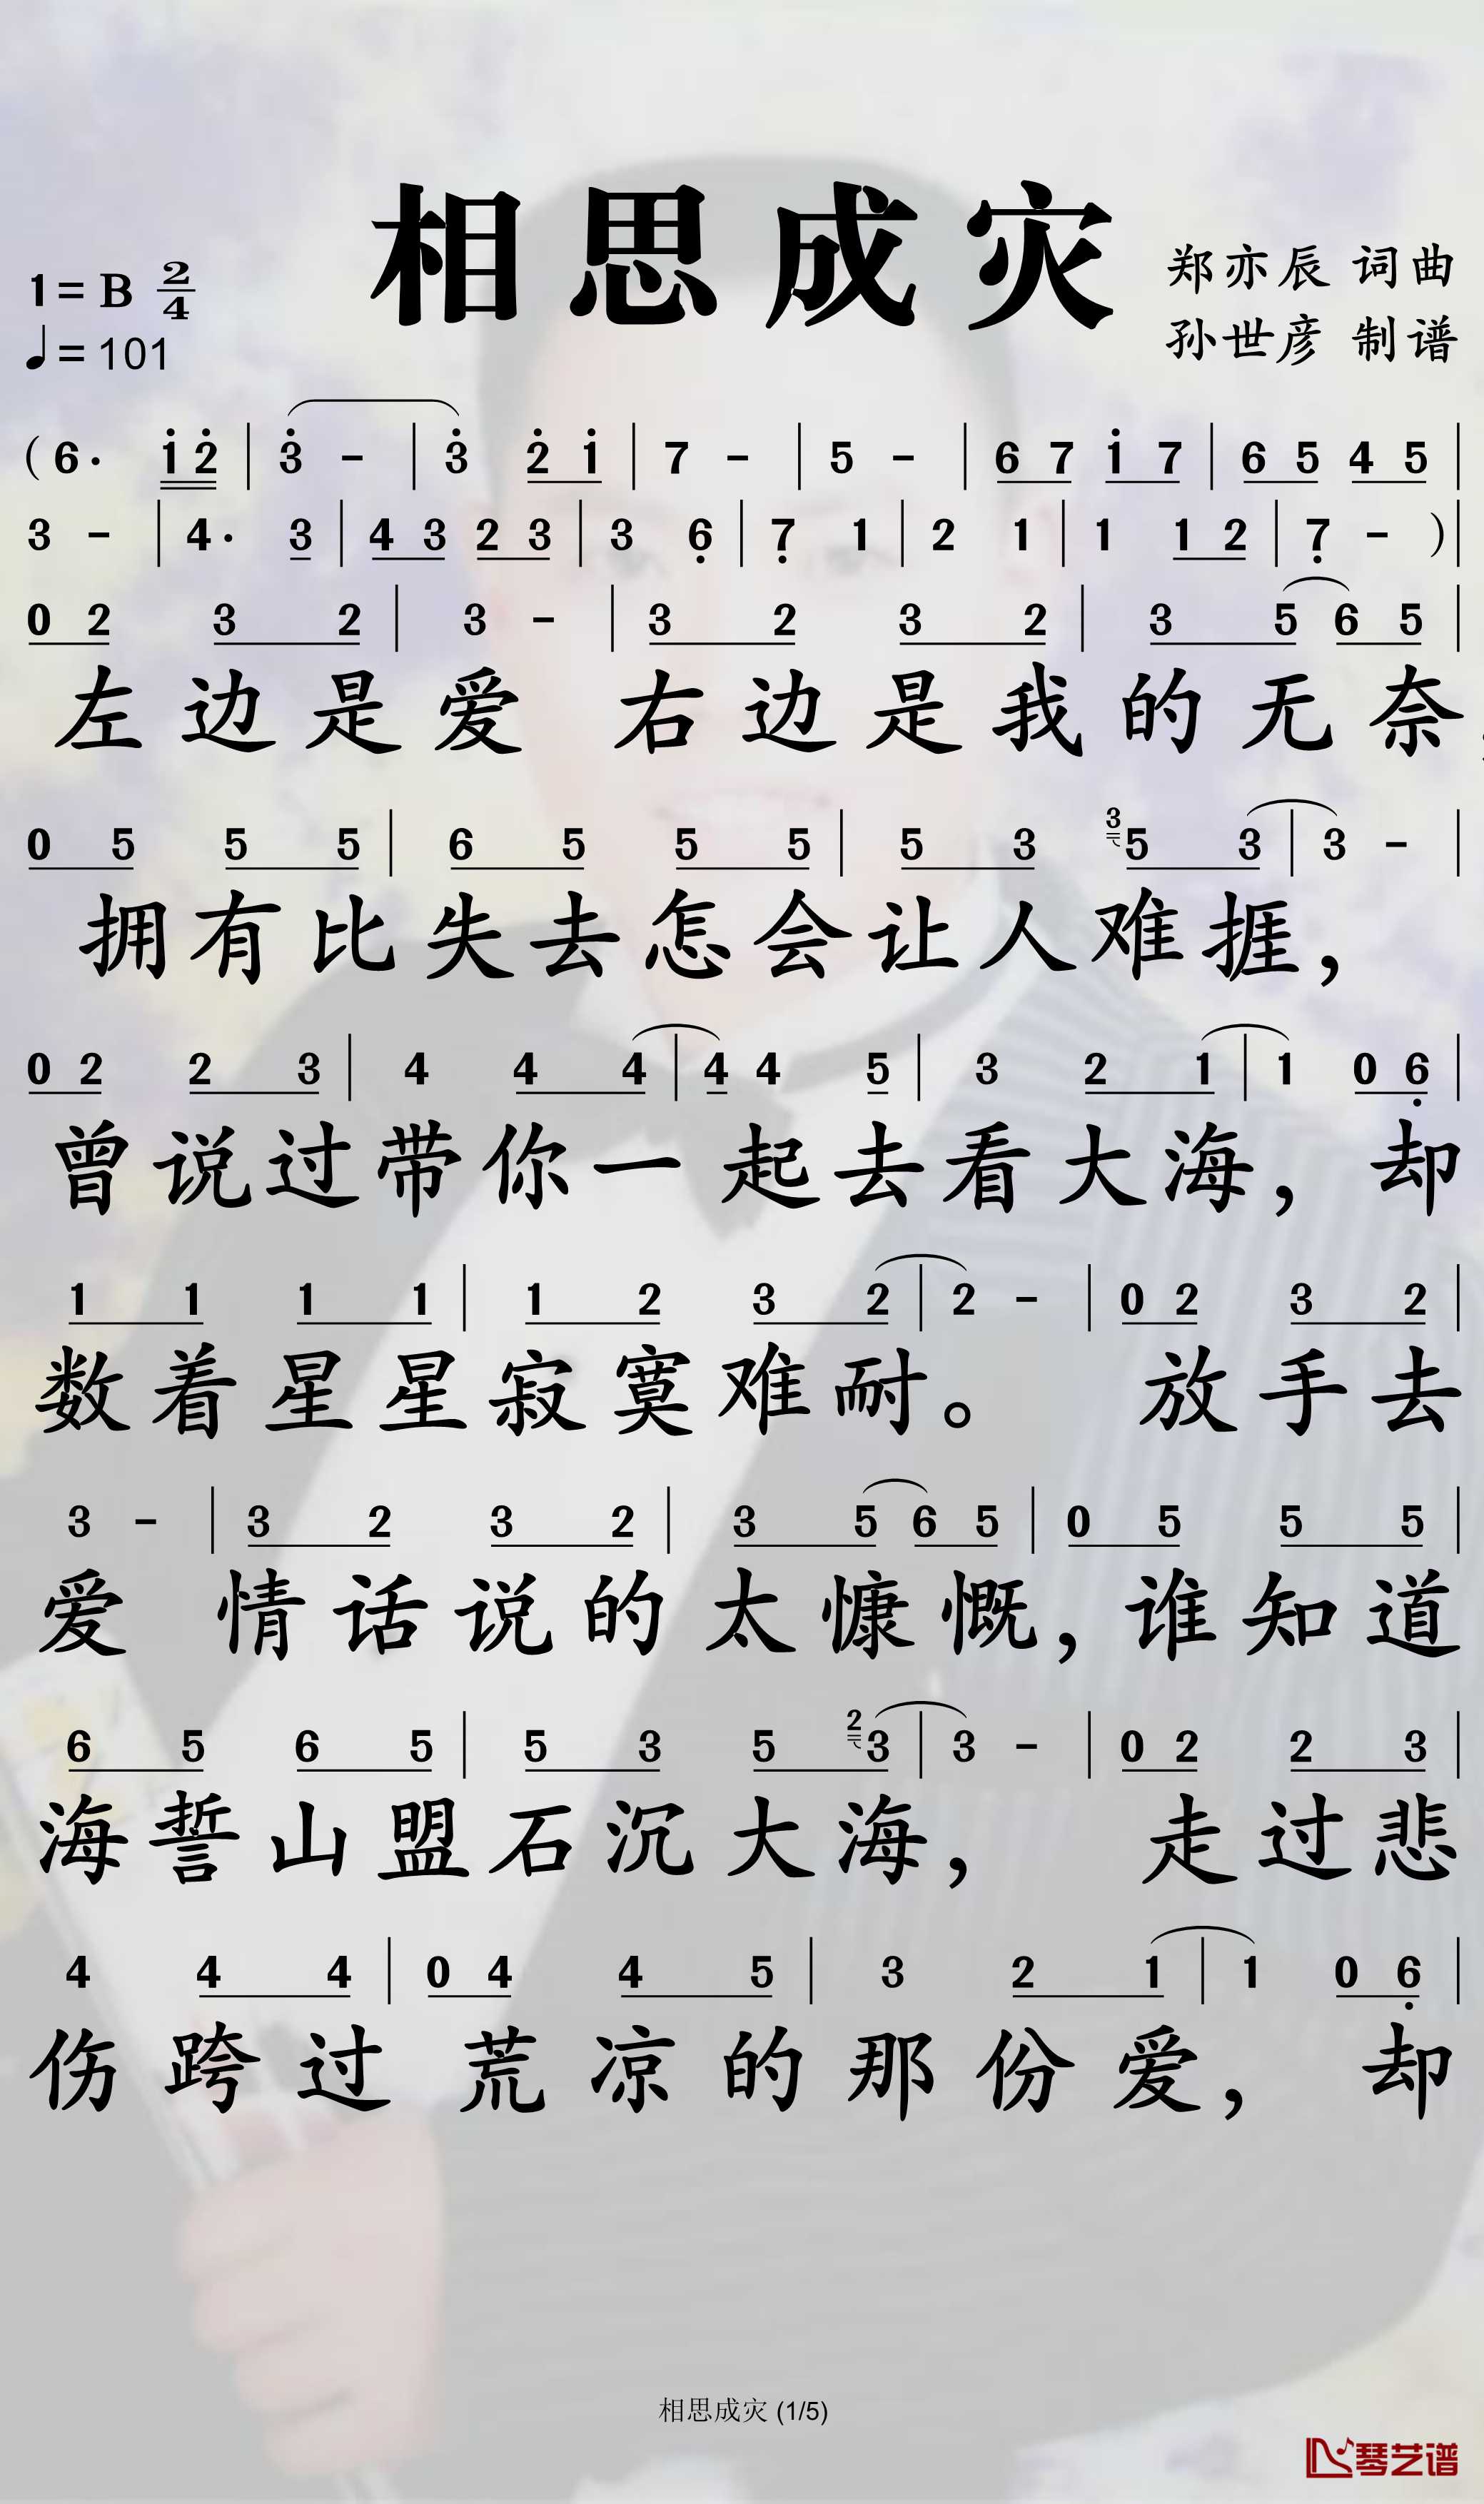 相思成灾
1=B 2/4
郑亦辰 词曲
♩=101
孙世彦 制谱
(6· i̇ 2̇ | 3̇ - | 3̇ 2̇ i̇ | 7 - | 5 - | 6 7 i̇ 7 | 6 5 4 5 |
3 - | 4· 3 | 4 3 2 3 | 3 6̣ | 7̣ 1 | 2 1 | 1 1 2 | 7̣ - ) |
0 2 3 2 | 3 - | 3 2 3 2 | 3 5 6 5 |
左边是爱 右边是我的无奈,
0 5 5 5 | 6 5 5 5 | 5 3 3 5 3 | 3 - |
拥有比失去怎会让人难捱,
0 2 2 3 | 4 4 4 | 4 4 5 | 3 2 1 | 1 0 6̣ |
曾说过带你一起去看大海, 却
1 1 1 1 | 1 2 3 2 | 2 - | 0 2 3 2 |
数着星星寂寞难耐。 放手去
3 - | 3 2 3 2 | 3 5 6 5 | 0 5 5 5 |
爱 情话说的太慷慨, 谁知道
6 5 6 5 | 5 3 5 2 3 | 3 - | 0 2 2 3 |
海誓山盟石沉大海, 走过悲
4 4 4 | 0 4 4 5 | 3 2 1 | 1 0 6̣ |
伤跨过荒凉的那份爱, 却
相思成灾 (1/5)
琴艺谱